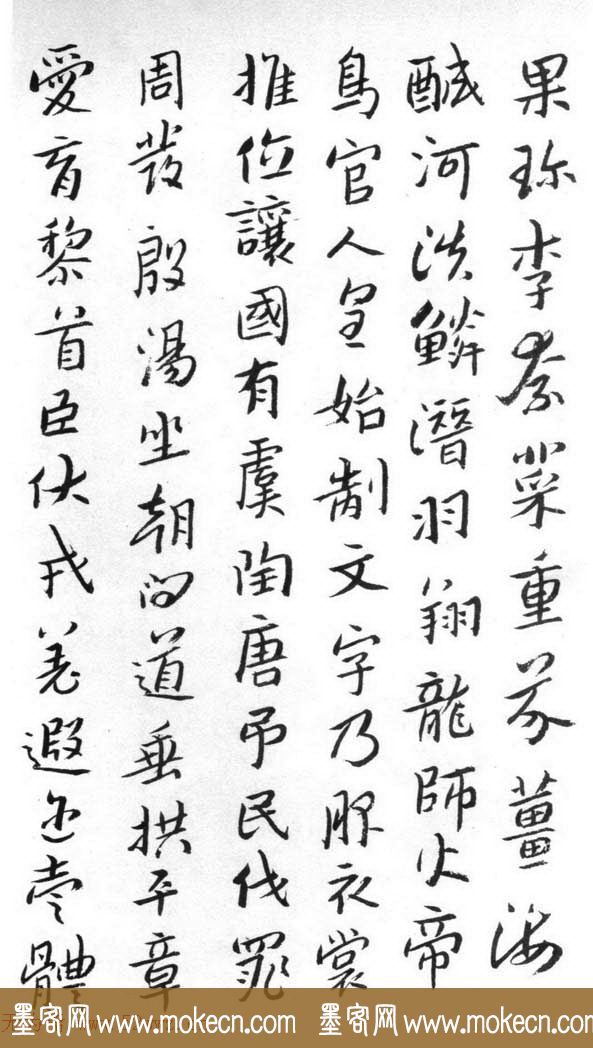 果珍李柰菜重芥薑海
醎河淡鱗潛羽翔龍師火帝
鳥官人皇始制文字乃服衣裳
推位讓國有虞陶唐弔民伐罪
周發殷湯坐朝問道垂拱平章
愛育黎首臣伏戎羌遐迩壹體
墨客网 www.mokecn.com 墨客网 www.mokecn.com